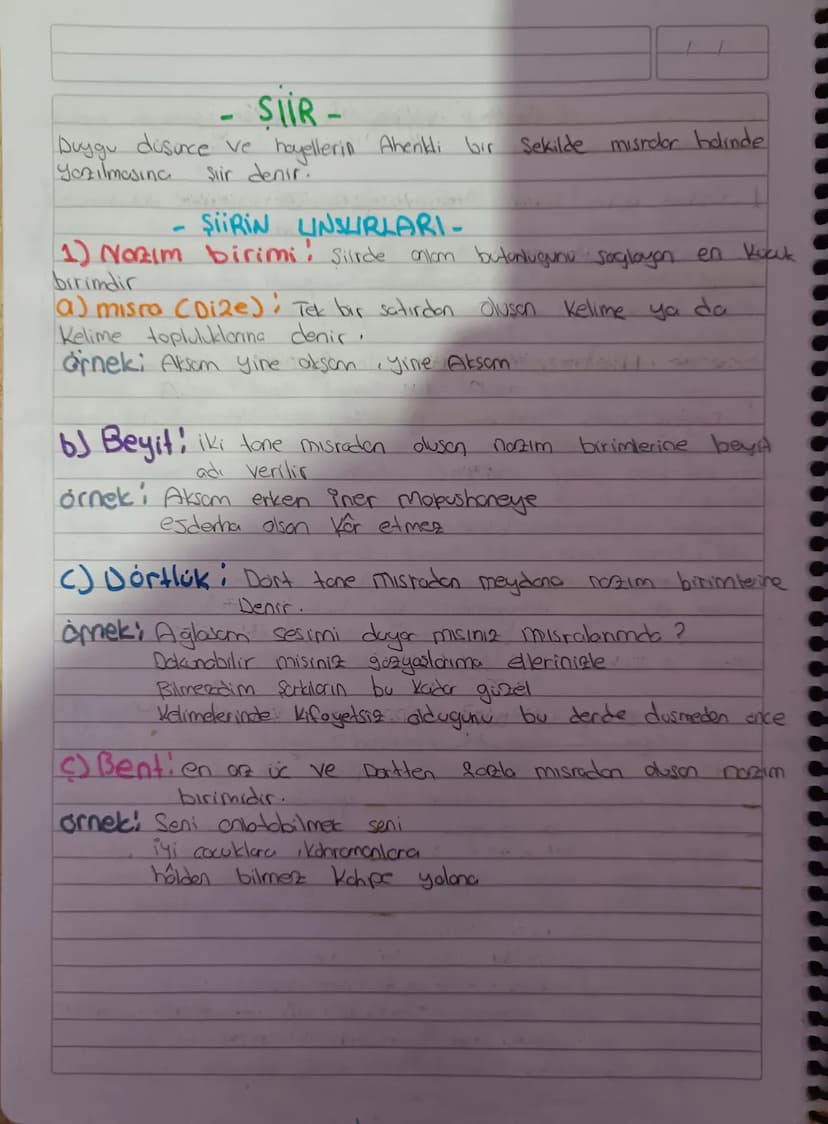 - ŞİİR -
Duygu düşünce ve hayellerin Ahenkli bir Şekilde mısralar halinde
yazılmasına şiir denir.
- ŞİİRİN UNSURLARI -
1) Nazım birimi: Şiirde anlam butunlugunu saglayan en kucuk
birimdir
a) mısra (Dize): Tek bir satırdan oluson Kelime ya da
Kelime topluluklarına denir.
örnek: Aksam yine aksam, yine Aksam
b) Beyit: iki tane mısradan oluson nazım birimlerine beyit
adı verilir
örnek: Aksam erken iner mapushaneye
esderha olson kâr etmez
c) Dörtlük: Dört tane mısradan meydana nazım birimlerine
Denir.
örnek: Ağlasam sesimi duyar mısınız mısralarımda?
Dokunabilir misiniz gözyaslarıma ellerinizle
Bilmezdim Şarkıların bu kadar güzel
Kelimelerinde kifayetsiz oldugunu bu derde dusmeden önce
ç) Bent: en az üç ve Dörtten fazla mısradan oluson nazım
birimidir.
örnek: Seni anlatabilmek seni
iyi cocuklara, kahramanlara
hâlden bilmez Kahpe yalana